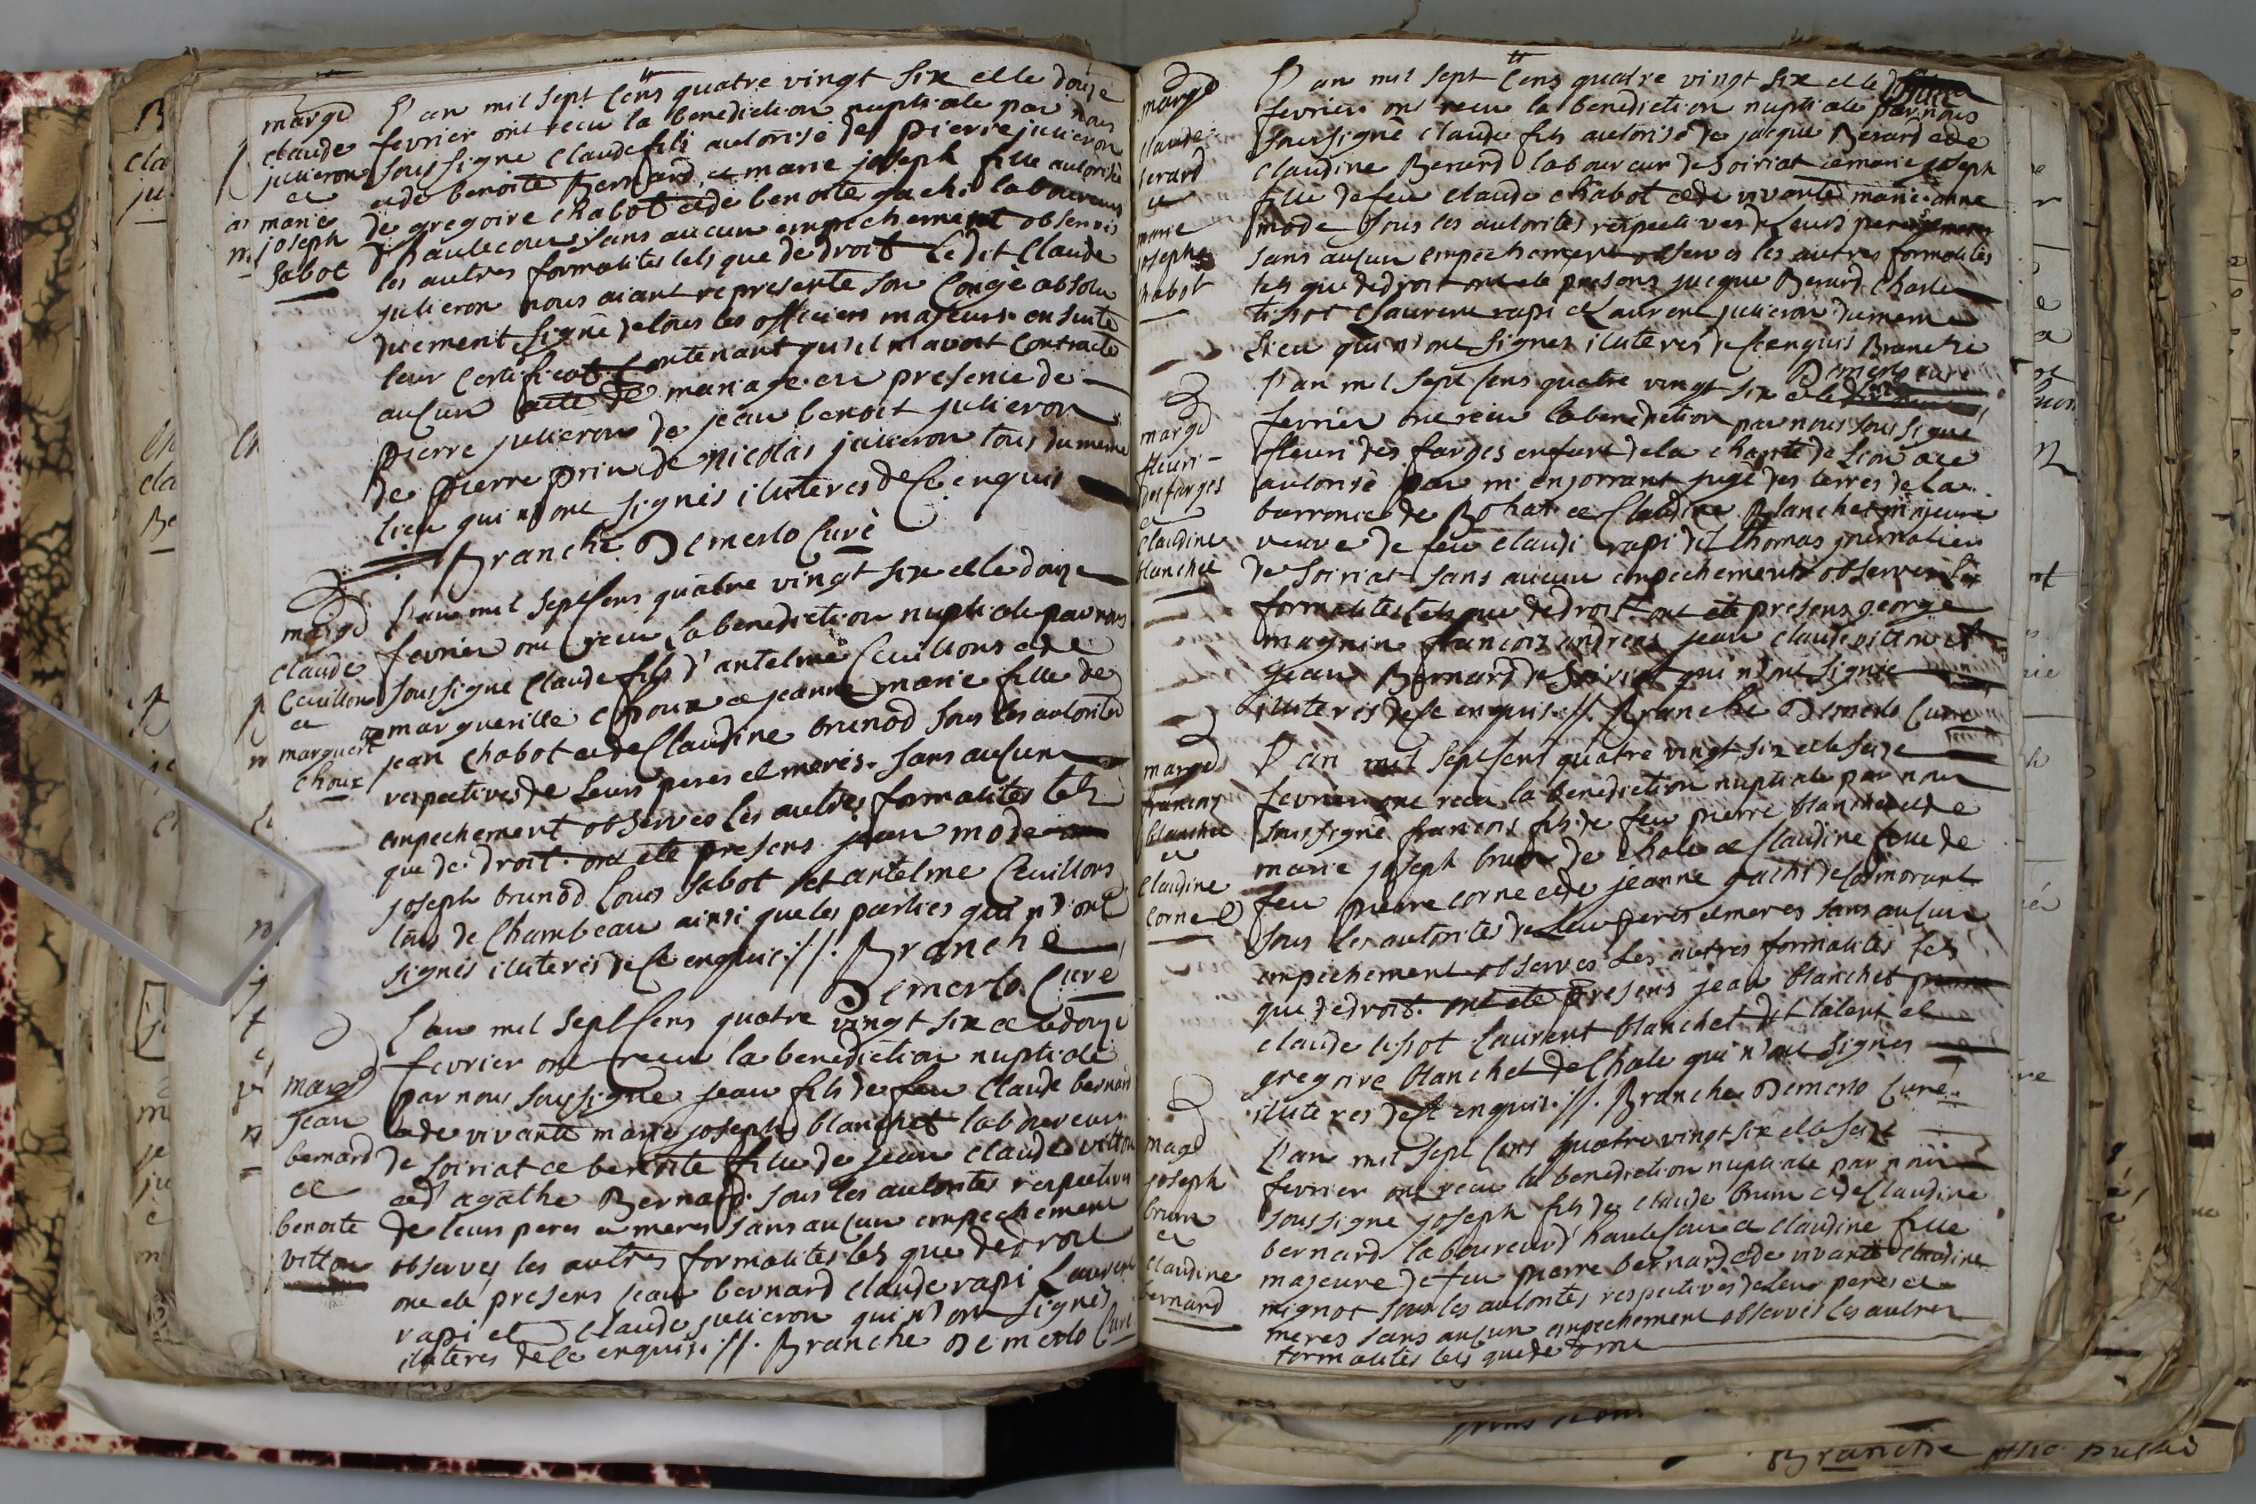 marge
claude
julieron
et
marie
joseph
sabot
L'an mil sept cens quatre vingt six et le douze
fevrier ont recu la benediction nuptiale par nous
soussigne claude fils autorisé de pierre julieron
et de benoite Bernard et marie joseph fille autorisée
de gregoire chabot et de benoite gachi laboureurs
d'hautecour sans aucun empechement observés
les autres formalites tels que de droit le dit claude
julieron nous aiant representé son congé absolu
duement signé de tous les officiers majeurs ensuite
leur certificat contenant qu'il n'avoit contracté
aucun acte de mariage en presence de
pierre julieron de jean benoit julieron
de pierre prin de nicolas julieron tous du meme
lieu qui n'ont signés iliteres de ce enquis
Branche Demerlo Curé
marge
claude
Cevillons
et
marguerite
choux
L'an mil sept cens quatre vingt six et le douze
fevrier ont recu la benediction nuptiale par nous
soussigne claude fils d'antelme Cevillons et de
margueritte choux et jeanne marie fille de
jean chabot et de Claudine brunod sous les autorités
respectives de leurs peres et meres. sans aucun
empechement observes les autres formalités tels
que de droit. ont ete presens jean mode
joseph brunod louis sabot et antelme Cevillons
tous de Chambeau ainsi que les parties qui n'ont
signés iliteres de ce enquis ://. Branche
Demerlo Curé
marge
jean
bernard
et
benoite
vitton
L'an mil sept cens quatre vingt six et le douze
fevrier ont recu la benediction nuptiale
par nous soussigne jean fils de feu claude bernard
et de vivante marie joseph blanchet laboureur
de soiriat et benoite fille de jean claude vitton
et d'agathe Bernard sous les autorités respectives
de leurs peres et meres sans aucun empechement
observes les autres formalites tels que de droit
ont ete presens jean bernard claude rapi Laurent
rapi et claude julieron qui n'ont signés
iliteres de ce enquis ://. Branche Demerlo Curé
marge
claude
berard
et
marie
joseph
chabot
L'an mil sept cens quatre vingt six et le
fevrier ont recu la benediction nuptiale par nous
soussigné claude fils autorisé de jacque Berard et de
claudine Berard laboureur de soiriat et marie joseph
fille de feu claude chabot et de vivante marie anne
mode sous les autorités respectives de leurs peres
sans aucun empechement observes les autres formalités
tels que de droit ont ete presens jacque Berard charle
tissot Laurent rapi et Laurent julieron du meme
lieu qui n'ont signes iliteres de ce enquis Branche
Demerlo curé
marge
fleuri
des farges
et
claudine
blanchet
L'an mil sept cens quatre vingt six et le
fevrier ont recu la benediction par nous soussigné
fleuri des farges enfant de la charité de Lion et
autorisé par m. enjorrant juge des terres de la
barronie de Bohan et Claudine Blanchet majeure
veuve de feu claude rapi dit thomas journalier
de soiriat sans aucun empechement observes les
formalites tels que de droit ont ete presens george
magnin francois andreas jean claude vitton et
jean Bernard de soiriat qui n'ont signé
iliteres de ce enquis ://. Branche Demerlo Curé
marge
francois
blanchet
et
claudine
corne
L'an mil sept cens quatre vingt six et le seize
fevrier ont recu la benediction nuptiale par nous
soussigné francois fils de feu pierre blanchet et de
marie joseph brun de chale et Claudine fille de
feu pierre corne et de jeanne gachi de
sous les autorités de leurs peres et meres sans aucun
empechement observes les autres formalités tels
que de droit. ont ete presens jean blanchet
claude tissot Laurent blanchet dit talent et
gregoire blanchet de Chale qui n'ont signes
iliteres de ce enquis ://. Branche Demerlo Curé
mage
joseph
brun
et
claudine
bernard
L'an mil sept cens quatre vingt six et le seize
fevrier ont recu la benediction nuptiale par nous
soussigne joseph fils de claude brun et de Claudine
bernard laboureur d' et claudine fille
majeure de feu pierre bernard et de vivante claudine
mignot sous les autorités respectives de leurs peres et
meres sans aucun empechement observés les autres
formalités tels que de droit
Branche